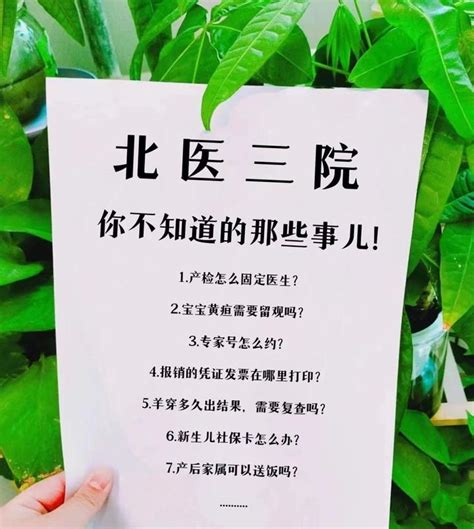 北医三院
你不知道的那些事儿!
1.产检怎么固定医生?
2.宝宝黄疸需要留观吗?
3.专家号怎么约?
4.报销的凭证发票在哪里打印?
5.羊穿多久出结果，需要复查吗?
6.新生儿社保卡怎么办?
7.产后家属可以送饭吗?
..........